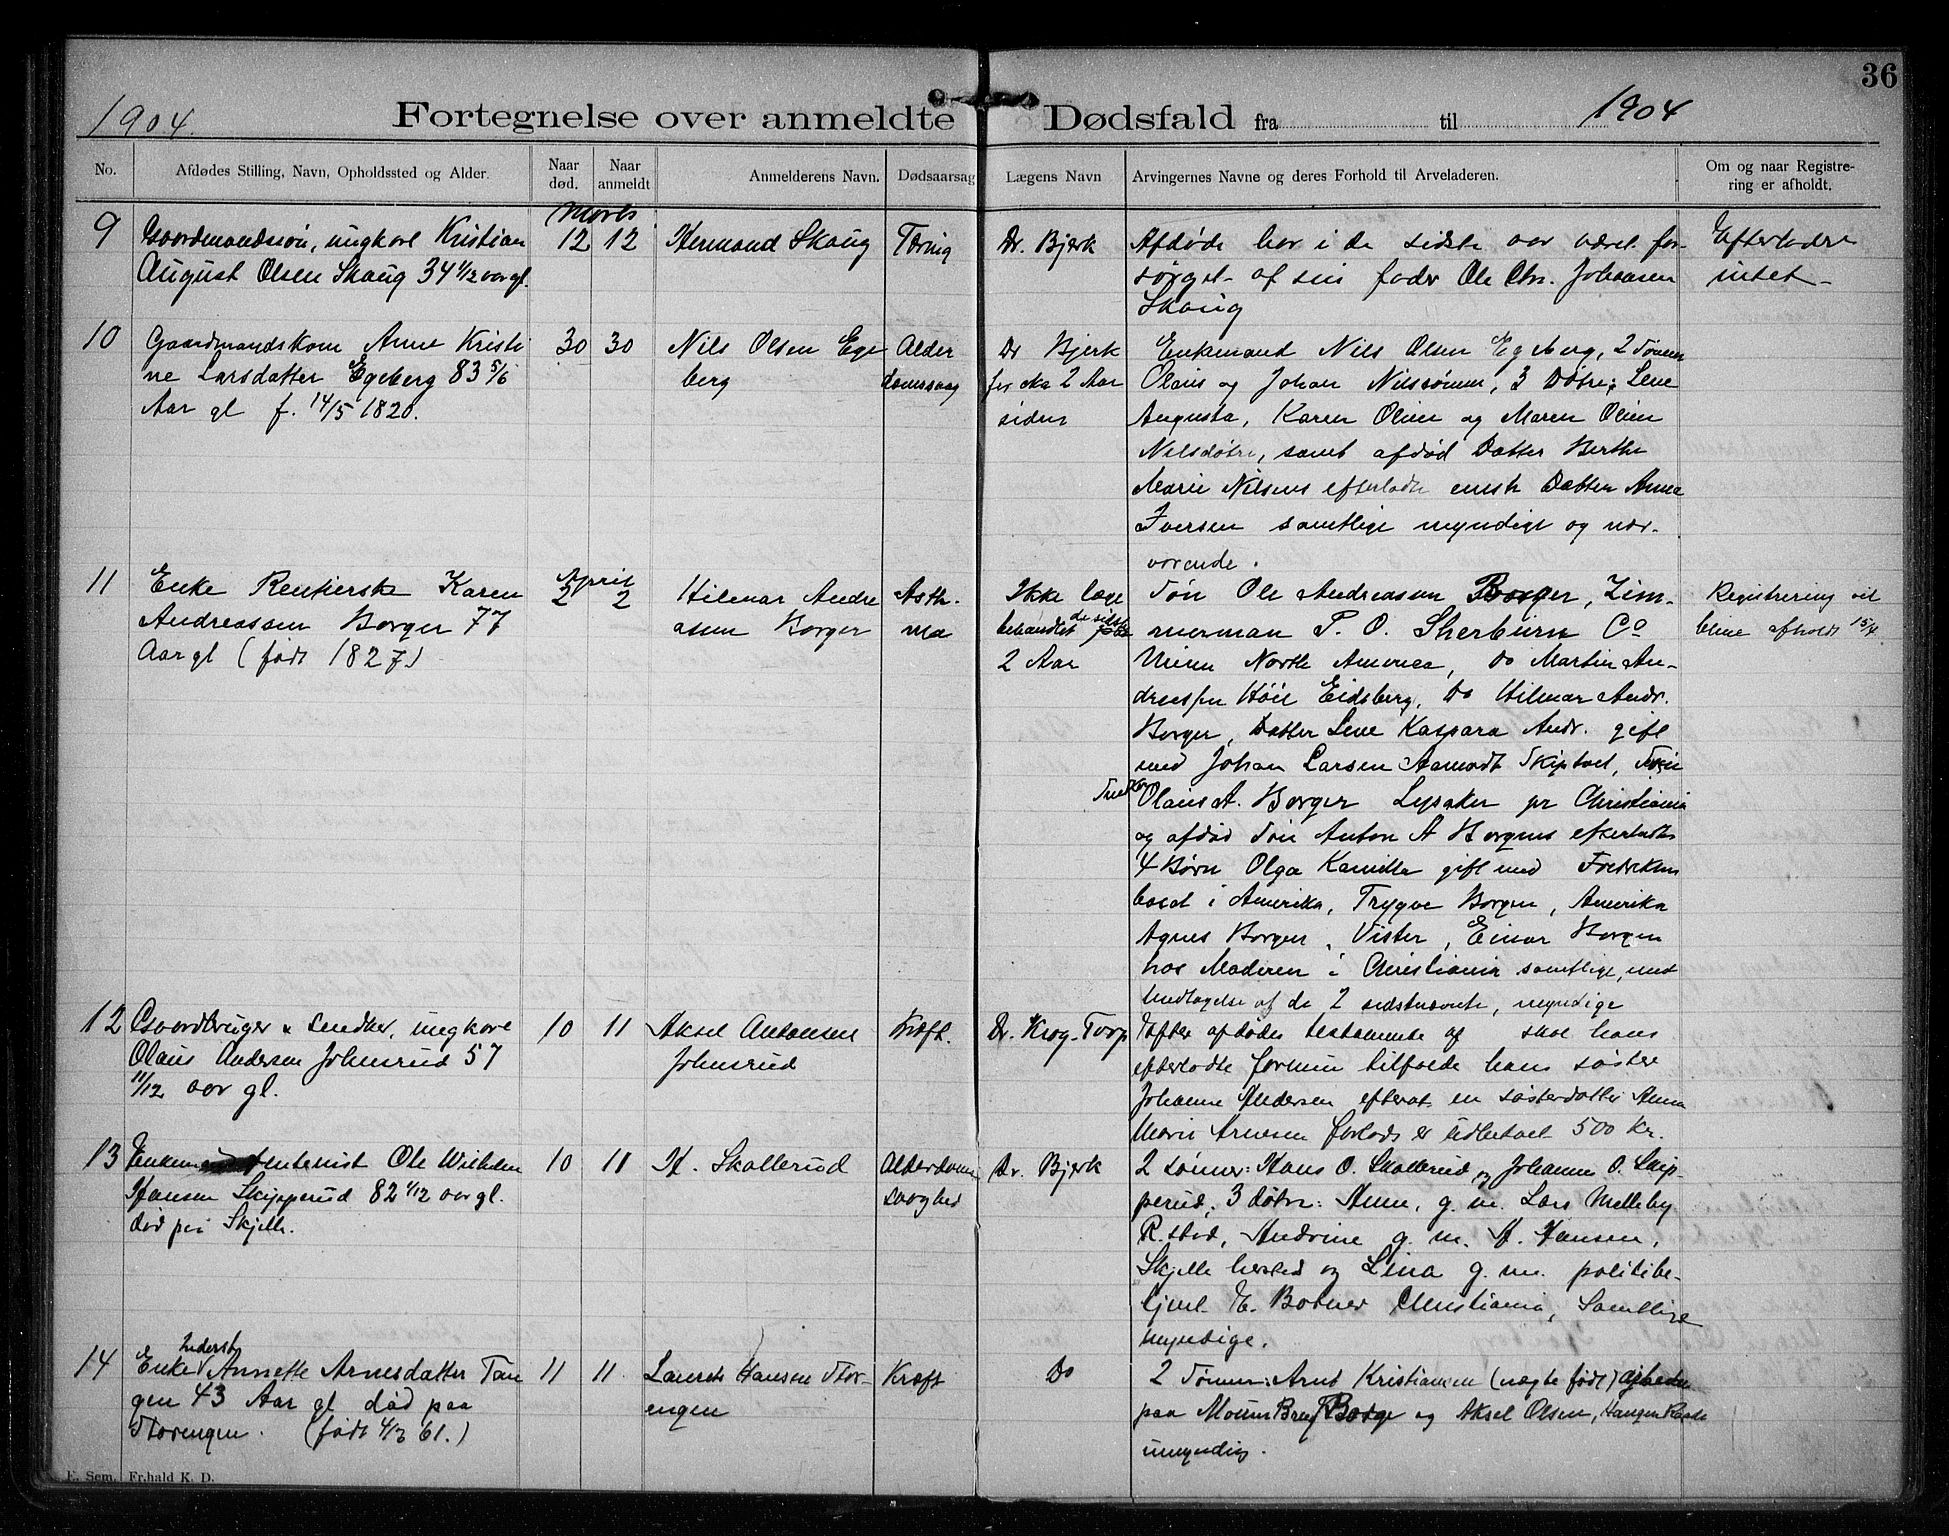 36
1904.
Fortegnelse over anmeldte Dødsfald fra til 1904
No.
Afdødes Stilling, Navn, Opholdssted og Alder.
Naar død.
Naar anmeldt
Anmelderens Navn.
Dødsaarsag
Lægens Navn
Arvingernes Navne og deres Forhold til Arveladeren.
Om og naar Registre-
ring er afholdt.
Marts
9 Gaardmandssøn, ungkarl Kristian 12 12 Hermand Skaug Tæring Dr. Bjerk Afdøde har i de sidste aar været for- Efterlader
August Olsen Skaug 34 1/12 aar gl. sørget af sin fader Ole Chr. Johansen intet
Skaug
10 Gaardmandskone Anne Kristi 30 30 Nils Olsen Ege Alder Dr Bjerk Enkemand Nils Olsen Egeberg, 2 Sønner
ne Larsdatter Egeberg 83 5/6 berg domssvag for cka 2 Aar Olaus og Johan Nilssønner, 3 Døtre: Lene
Aar gl f. 14/5 1820. siden Augusta, Karen Oline og Maren Oline
Nilsdøtre, samt afdød Datter Berthe
Marie Nilsens efterladte enste Datter Anna
Iversen samtlige myndige og nær-
værende.
April
11 Enke Rentierske Karen 2 2 Hilmar Andre Asth- Ikke læge Søn Ole Andreassen Borger, Zim-
Andreassen Borger 77 asen Borger ma behandlet de sidste merman P. O. Sherburn Co
Aar gl (født 1827) 2 Aar Minn North America, do Martin An-
Registrering vil
blive afholdt 15/4
Høie Eidsberg, Do Hilmar Andr.
Borger, Datter Lene Kaspara Andr. gift
med Johan Larsen Aamodt Skiptvet, Søn
Snedker Olaus A. Borger Lysaker pr Christiania
og afdød Søn Anton A Borgers efterladte
4 Børn Olga Kamilla gift med Fredriksen
bosat i Amerika, Trygve Borger, Amerika
Agnes Borger, Vister, Einar Borger
hos Moderen i Christiania samtlige, med
Undtagelse af de 2 sidstnævnte, myndige
12 Gaardbruger & snedker, ungkarl 10 11 Aksel Antonsen Kræft. Dr. Krog-Torp Efter afdødes testamente af skal hans
Olaus Andersen Johnsrud 57 Johnsrud efterladte formue tilfalde hans søster
11/12 aar gl. Johanne Andersen efterat en søsterdatter Anna
Marie Arnesen Forlads er udbetalt 500 Kr.
13 Enkemand Ole Wilhelm 10 11 H. Skallerud Alderdoms Dr. Bjerk 2 sønner: Hans O. Skallerud og Johannes O. Skip-
Hansen Skipperud 82 1/12 aar gl. svaghed perud, 3 døtre: Anne, g. m. Lars Melleby
død på Skjelle. R.stad, Andrine g. m. H. Hansen,
Skjelle hersted og Lina g. m. politibe-
tjent E. Bodner Christiania, Samtlige
myndige.
Inderst
14 Enke Annette Arnesdatter Tan 11 11 Laurits Hansen Stor- Kræft Do 2 Sønner: Arnt Kristiansen (uægte født) arbeider
gen 43 Aar gl død paa engen paa Borge og Aksel Olsen, Haugen Raade
Storengen. (født 4/2 61.) umyndig.
E. Sem. Fr.hald K. D.